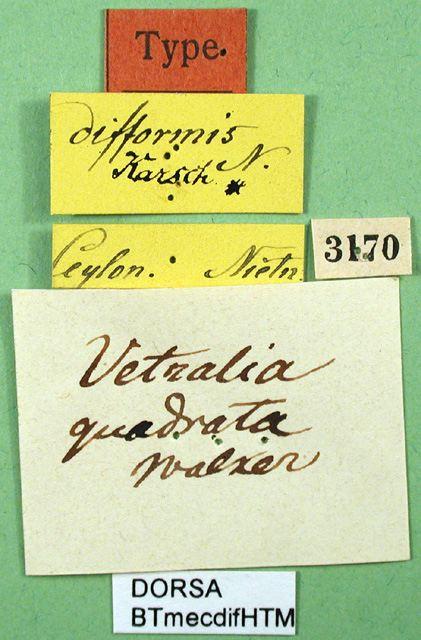 Type.
difformis
Karsch N.
*
Ceylon. Nietn.
3170
Vetralia
quadrata
Walker
DORSA
BTmecdifHTM